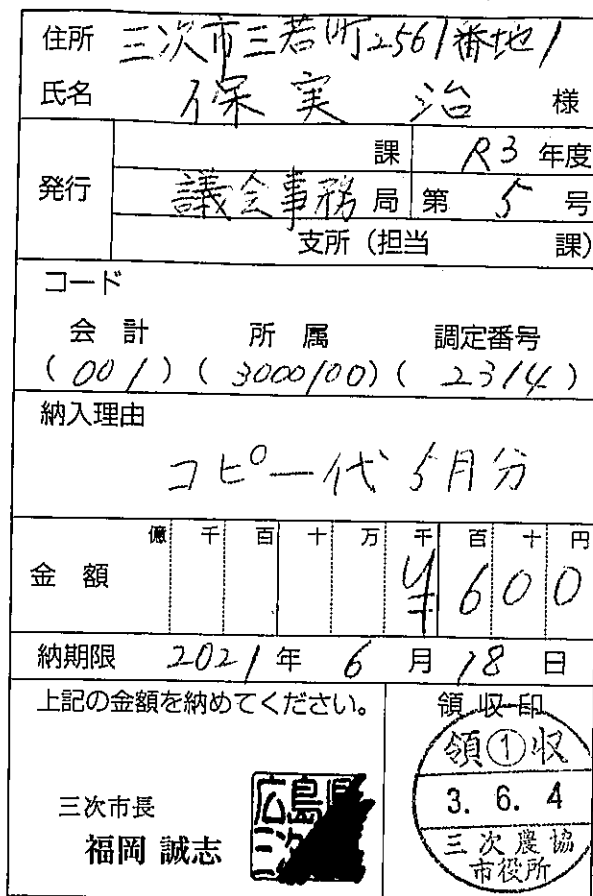 住所 三次市三若町2561番地1
氏名 保実 治 様
発行
課 R3 年度
議会事務局 第 5 号
支所（担当 課）
コード
会計 所属 調定番号
(001) (3000100) (2314)
納入理由
コピー代 5月分
億 千 百 十 万 千 百 十 円
金額 ¥600
納期限 2021年 6月 18日
上記の金額を納めてください。
領収印
領①収
3. 6. 4
三次農協
市役所
三次市長
福岡 誠志
広島